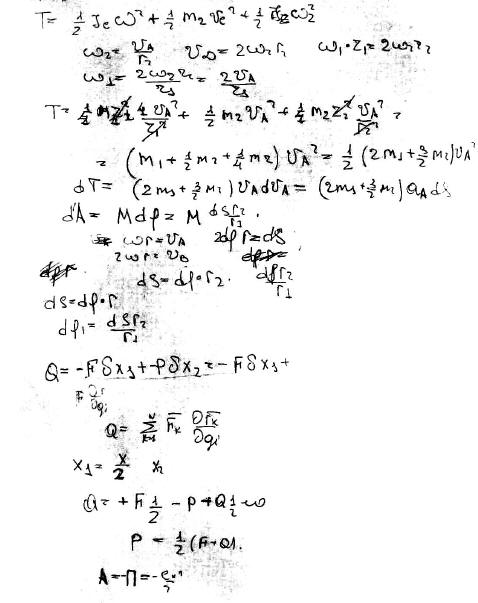 T= 1/2 J_c ω² + 1/2 m₂ v_c² + 1/2 J₂ ω₂²
ω₂ = v_A/r₂ v_D = 2ω₂r₂ ω₁·r₁ = 2ω₂r₂
ω₁ = 2ω₂r₂/r₁ = 2v_A/r₁
T = 1/2 m₁ 4v_A² + 1/2 m₂ v_A² + 1/4 m₂ r₂² v_A²/r₂² =
= (m₁ + 1/2 m₂ + 1/4 m₂) v_A² = 1/2 (2m₁ + 3/2 m₂) v_A²
dT = (2m₁ + 3/2 m₂) v_A dv_A = (2m₁ + 3/2 m₂) a_A ds
dA = M dφ = M dS r₂/r₁.
ωr = v_A 2dφ r = dS
2ωr = v_D
dS = dφ·r₂. dφ r₂/r₁
dS = dφ·r
dφ₁ = dS r₂/r₁
Q = -Fδx₁ + Pδx₂ = -Fδx₁ +
F ∂r/∂q_i
Q = Σ F̄_k ∂r̄_k/∂q_i
x₁ = x/2 x₂
Q = +F 1/2 - P + Q 1/2 =0
P = 1/2 (F+Q).
A = -П =